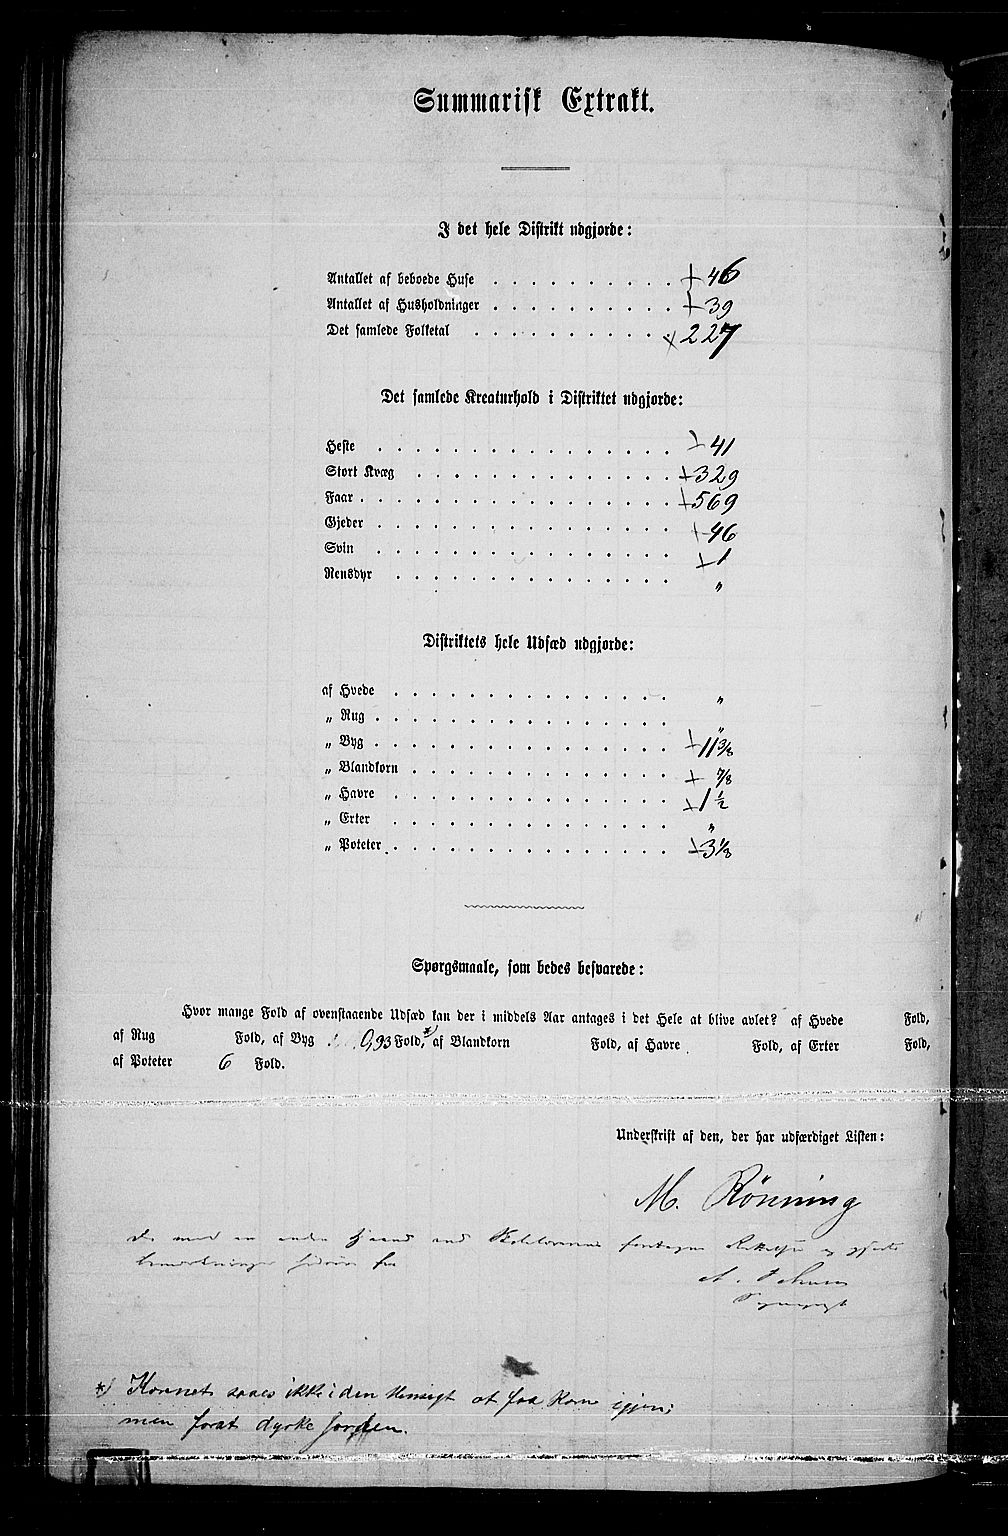 Summarisk Extrakt.
I det hele Distrikt udgjorde:
Antallet af beboede Huse . . . . . . . . . . + 46
Antallet af Husholdninger . . . . . . . . . . + 39
Det samlede Folketal . . . . . . . . . . . × 227
Det samlede Kreaturhold i Distriktet udgjorde:
Heste . . . . . . . . . . . . . . . . + 41
Stort Kvæg . . . . . . . . . . . . . . + 329
Faar . . . . . . . . . . . . . . . . . + 569
Gjeder . . . . . . . . . . . . . . . . + 46
Svin . . . . . . . . . . . . . . . . + 1
Rensdyr . . . . . . . . . . . . . . . „
Distriktets hele Udsæd udgjorde:
af Hvede . . . . . . . . . . . . . . . „
„ Rug . . . . . . . . . . . . . . . . „
„ Byg . . . . . . . . . . . . . . . . + 11 3/8
„ Blandkorn . . . . . . . . . . . . . . + 7/8
„ Havre . . . . . . . . . . . . . . . + 1 1/2
„ Erter . . . . . . . . . . . . . . . „
„ Poteter . . . . . . . . . . . . . . . + 3 1/8
Spørgsmaale, som bedes besvarede:
Hvor mange Fold af ovenstaaende Udsæd kan der i middels Aar antages i det Hele at blive avlet? af Hvede Fold,
af Rug Fold, af Byg 0,93 Fold, *) af Blandkorn Fold, af Havre Fold, af Erter Fold,
af Poteter 6 Fold.
Underskrift af den, der har udfærdiget Listen:
M. Rönning
De med en anden Haand end
*) Kornet saaes ikke i den Hensigt at faa Korn igjen;
men forat dyrke Jorden.